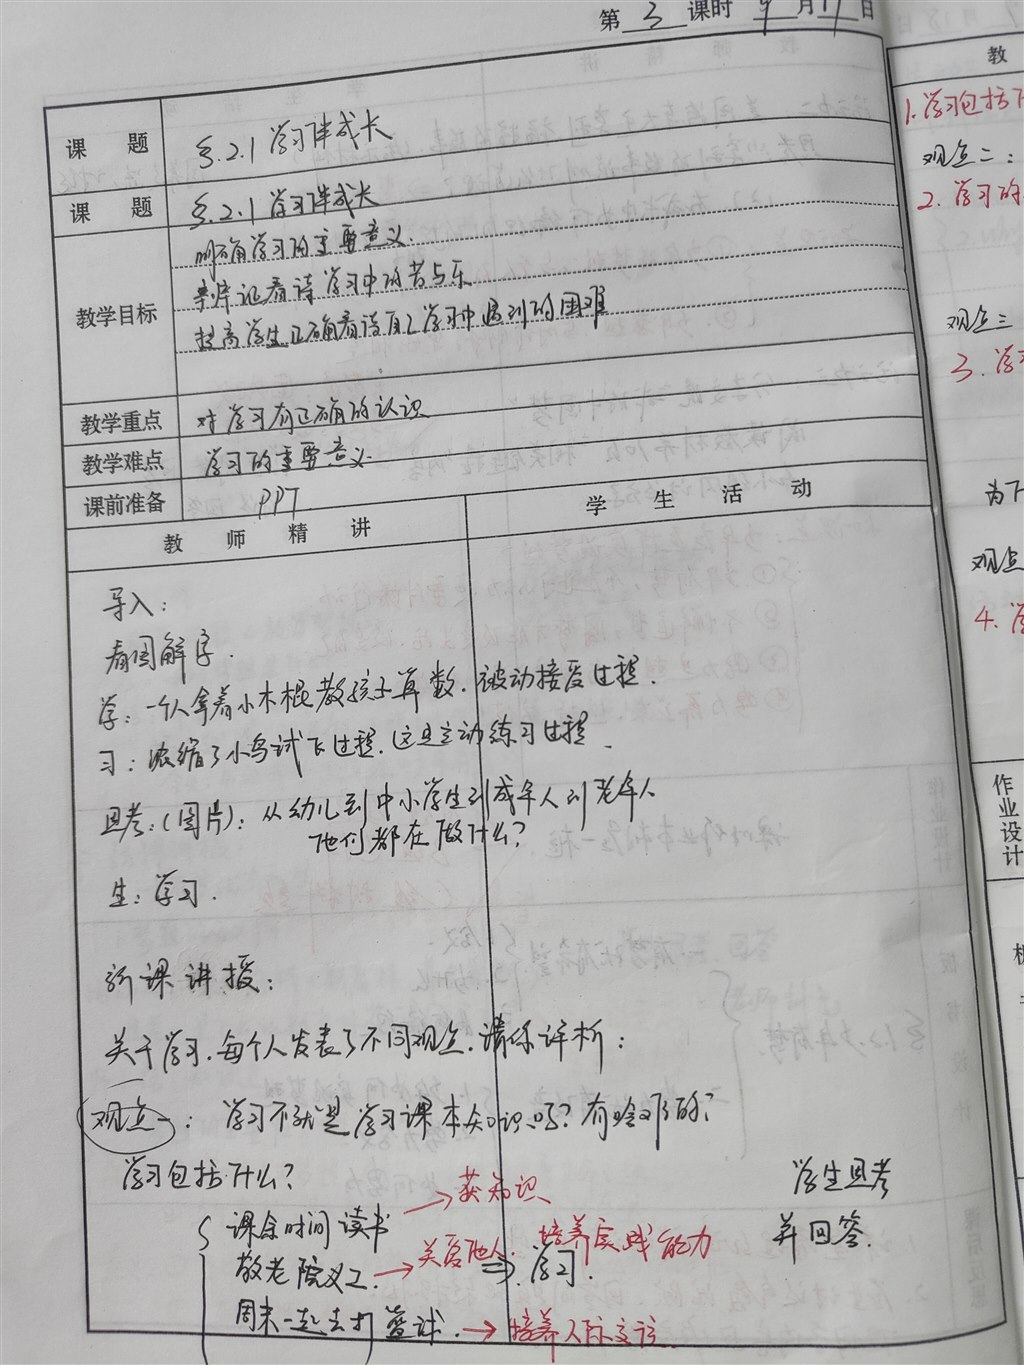 第 3 课时 9 月 17 日
课 题 §.2.1 学习伴成长
课 题 §.2.1 学习伴成长
教学目标 明确学习的重要意义.
辩证看待学习中的苦与乐
提高学生正确看待自己学习中遇到的困难
教学重点 对学习有正确的认识
教学难点 学习的重要意义.
课前准备 PPT.
教 师 精 讲 学 生 活 动
导入:
看图解字.
学: 一个人拿着小木棍教孩子算数. 被动接受过程.
习: 浓缩了小鸟试飞过程. 这是主动练习过程.
思考:(图片): 从幼儿到中小学生到成年人到老年人
他们都在做什么?
生: 学习.
新课讲授:
关于学习. 每个人发表了不同观点. 请你评析:
观点一: 学习不就是学习课本知识吗? 有啥难的?
学习包括什么? 学生思考
课余时间读书 → 获知识 并回答.
敬老院义工 → 关爱他人. 培养实践能力
⇒ 学习.
周末一起去打篮球. → 培养人际交往
教
1. 学习包括
观点二:
2. 学习的
观点三
3. 学
为了
观点
4. 学
作业设计